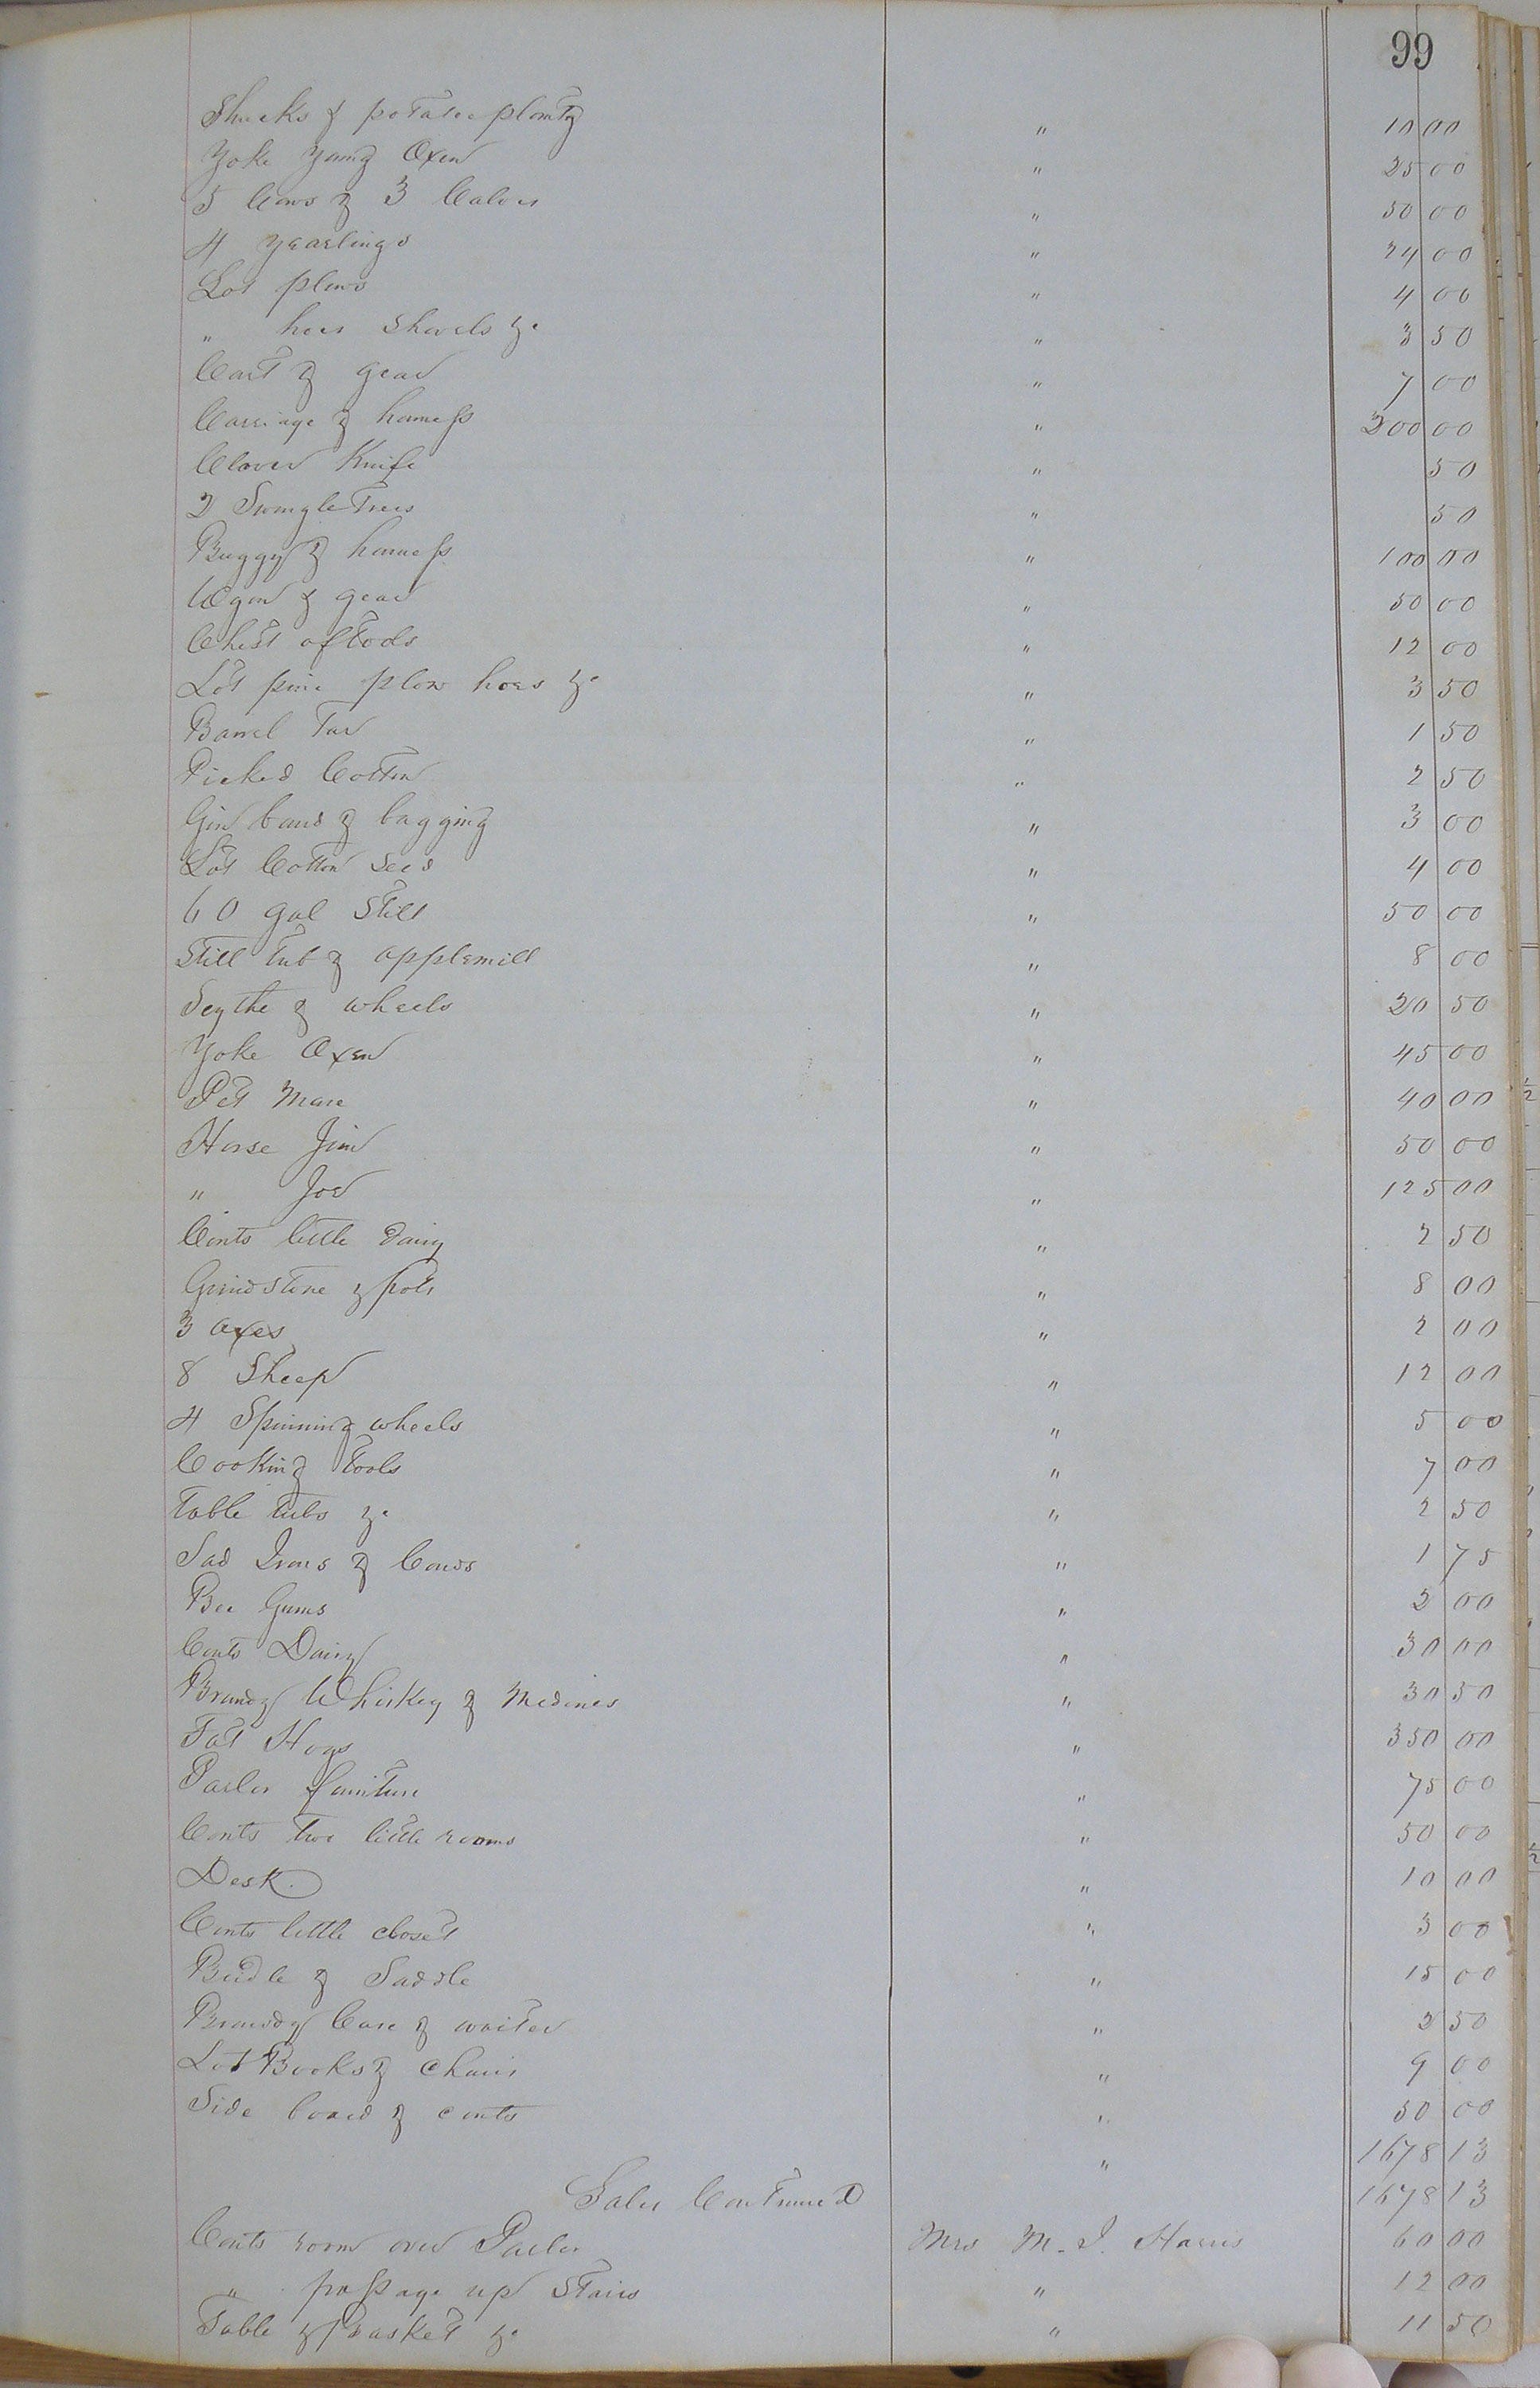 99
Shucks & potatoe plants " 10 00
Yoke young Oxen " 25 00
5 Cows & 3 Calves " 50 00
4 yearlings " 24 00
Lot plows " 4 00
" hoes shovels &c " 3 50
Cart & gear " 7 00
Carriage & harness " 300 00
Clover Knife " 50
2 Swingle Trees " 50
Buggy & harness " 100 00
Wagon & gear " 50 00
Chest of Tools " 12 00
Lot plow hoes &c " 3 50
Barrel Tar " 1 50
Picked Cotton " 2 50
Gin band & bagging " 3 00
Lot Cotton seed " 4 00
60 gal Still " 50 00
Still Tub & applemill " 8 00
Scythe & wheels " 20 50
Yoke Oxen " 45 00
Pet Mare " 40 00
Horse Jim " 50 00
" Joe " 125 00
Conts little Dairy " 2 50
Grindstone & pots " 8 00
3 axes " 2 00
8 Sheep " 12 00
4 Spinning wheels " 5 00
Cooking Tools " 7 00
Table tubs &c " 2 50
Sad Irons & Cards " 1 75
Bee Gums " 2 00
Conts Dairy " 30 00
Brandy Whiskey & Medines " 30 50
Fat Hogs " 350 00
Parlor furniture " 75 00
Conts two little rooms " 50 00
Desk " 10 00
Conts little closet " 3 00
Bridle & Saddle " 15 00
Brandy Case & waiter " 2 50
Lot Books & chairs " 9 00
Side board & conts " 50 00
" 1678 13
Sales Continued 1678 13
Conts room over Parlor Mrs M. J. Harris 60 00
" passage up Stairs " 12 00
Table & Basket &c " 11 50